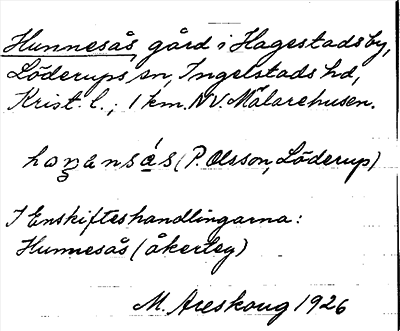 Hunnesås, gård i Hagestads by,
Löderups sn, Ingelstads hd,
Krist. l.; 1 km. NV. Mälarehusen.
(P. Olsson, Löderup)
I Enskifteshandlingarna:
Hunnesås (åkerley)
M. Areskoug 1926